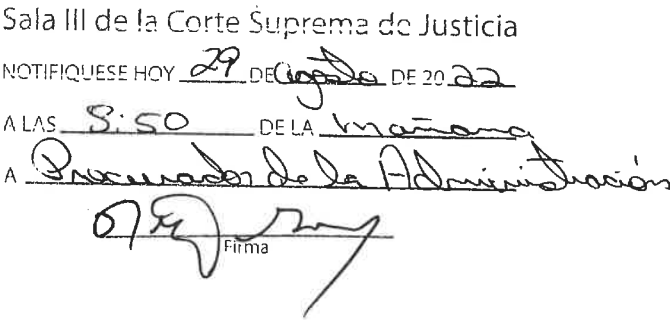 Sala III de la Corte Suprema de Justicia
NOTIFIQUESE HOY 29 DE agosto DE 20 22
A LAS 8:50 DE LA mañana
A Procurador de la Administración
Firma